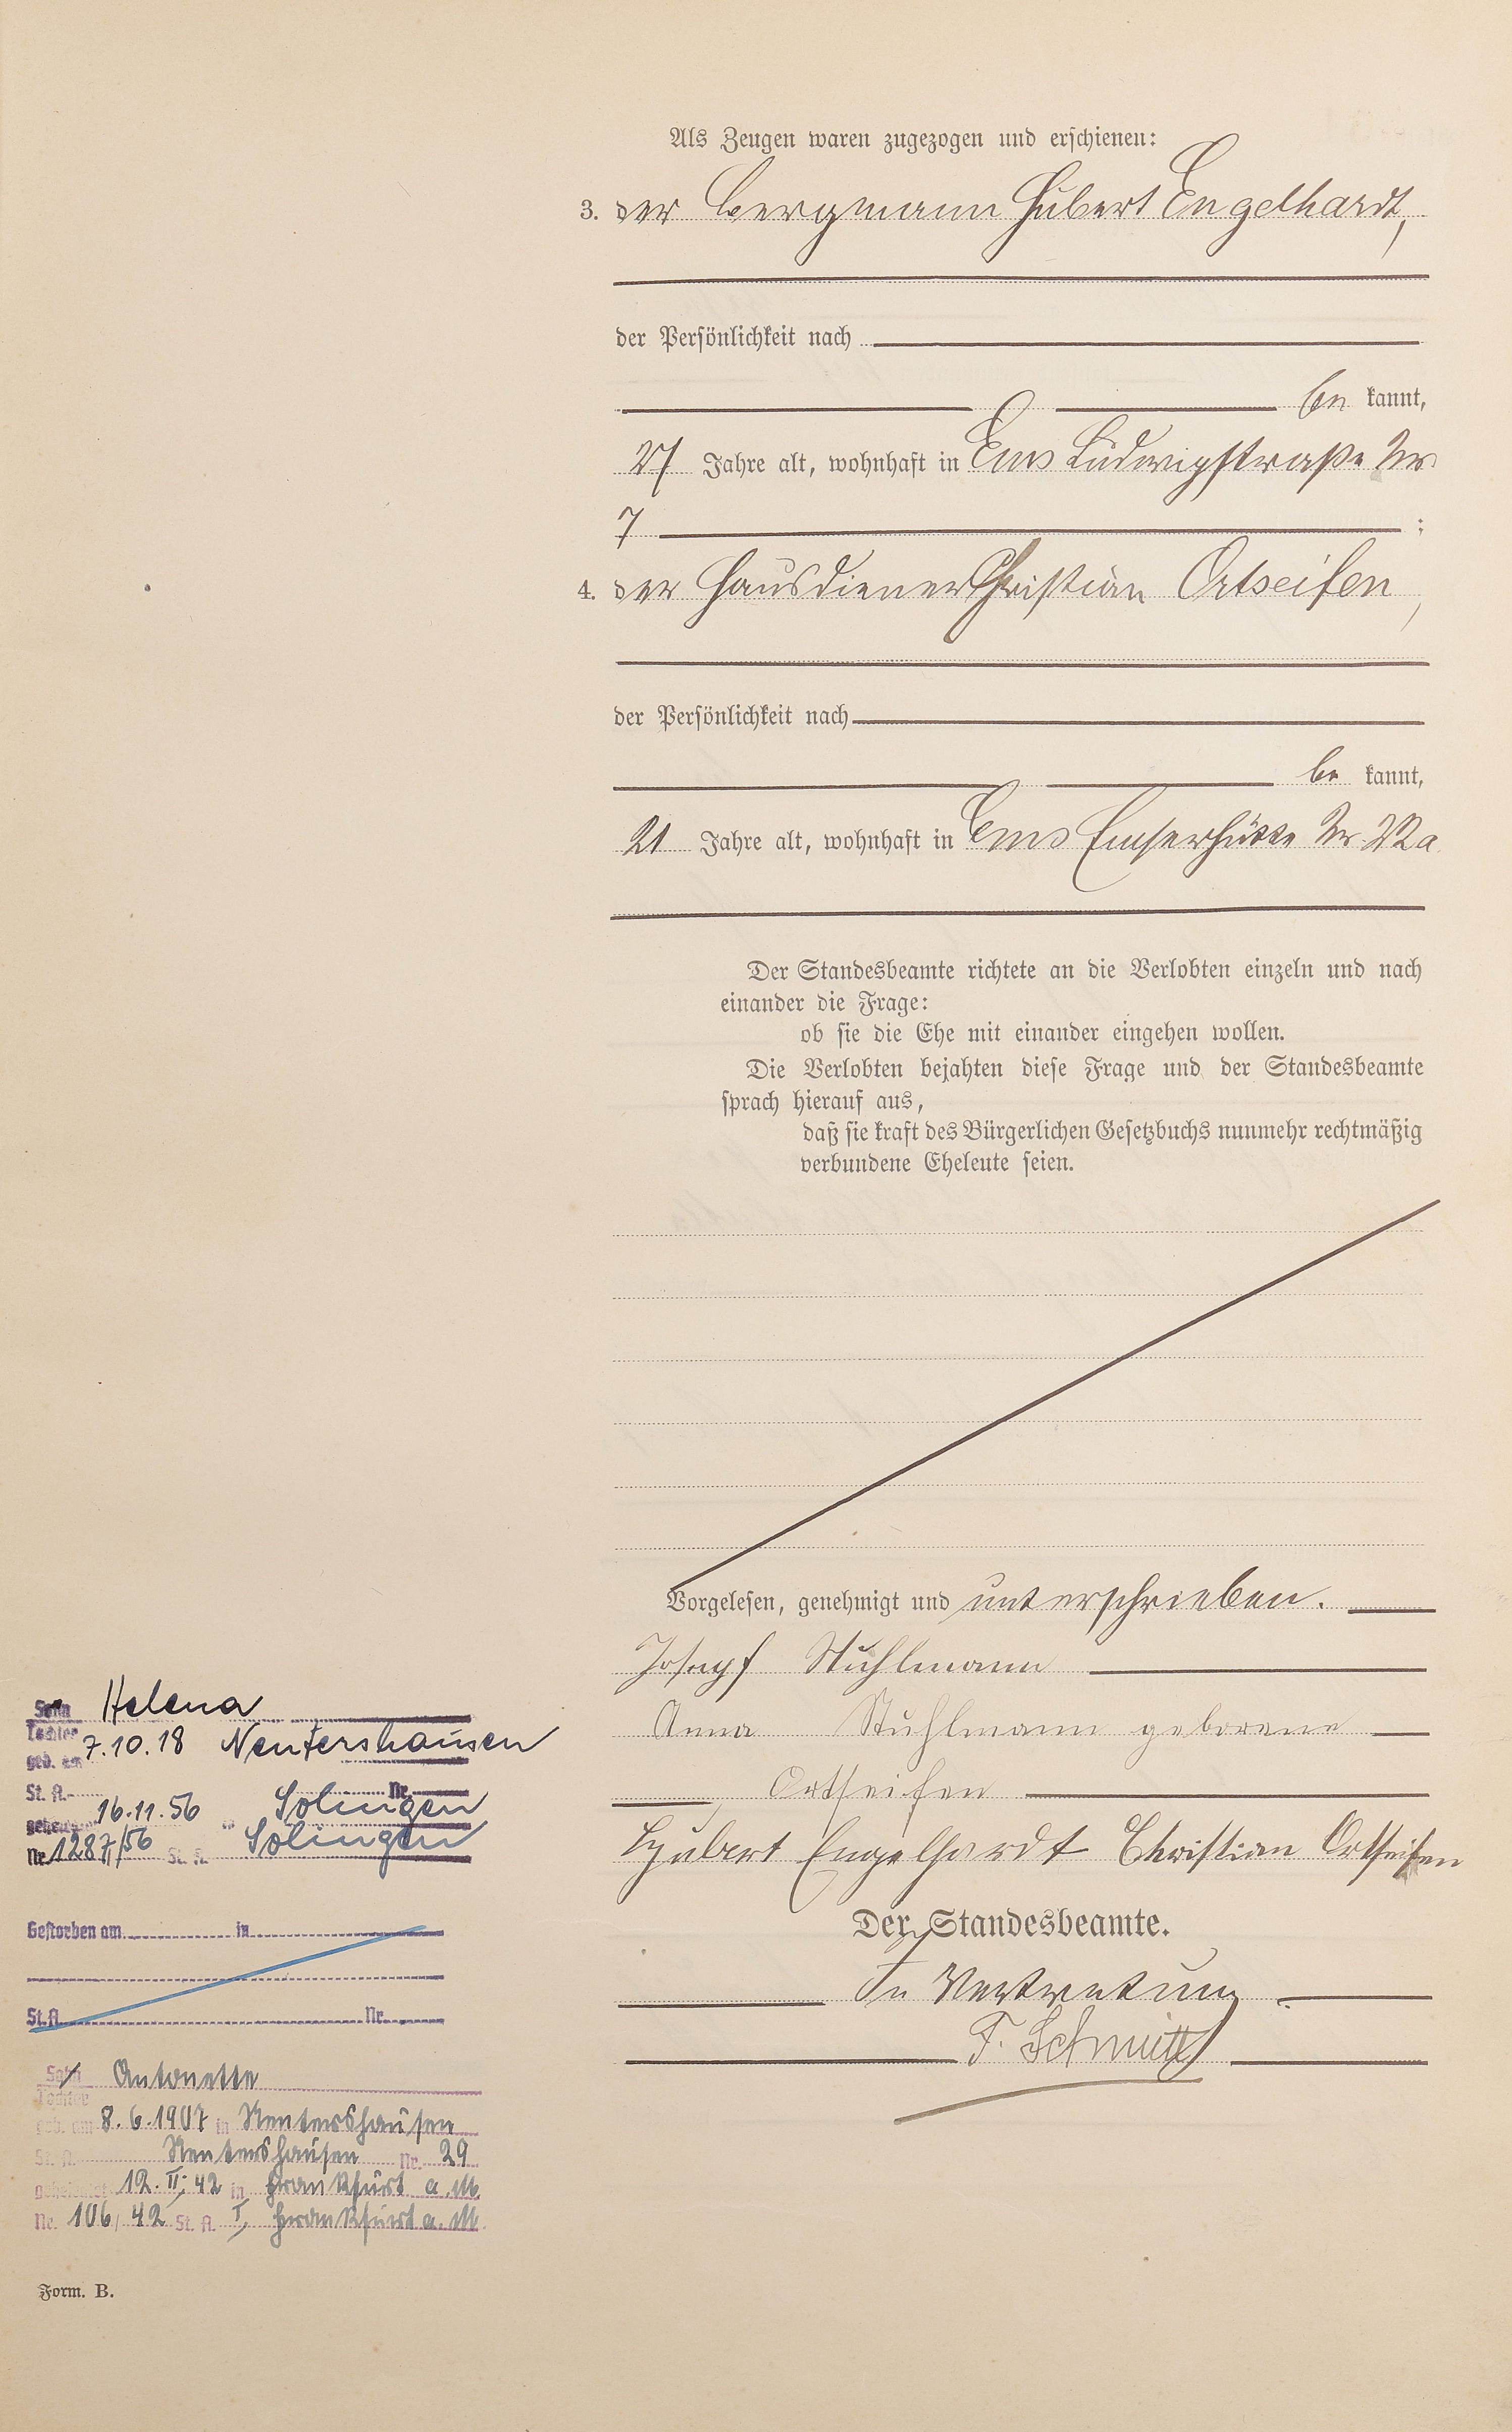 Als Zeugen waren zugezogen und erschienen:
3. der Bergmann Hubert Engelhardt,
der Persönlichkeit nach
be kannt,
27 Jahre alt, wohnhaft in Ems Ludwigstraße Nr
7 ;
4. der Hausdiener Christian Ortseifen,
der Persönlichkeit nach
be kannt,
21 Jahre alt, wohnhaft in Ems Emserhütte Nr 22a
Der Standesbeamte richtete an die Verlobten einzeln und nach
einander die Frage:
ob sie die Ehe mit einander eingehen wollen.
Die Verlobten bejahten diese Frage und der Standesbeamte
sprach hierauf aus,
daß sie kraft des Bürgerlichen Gesetzbuchs nunmehr rechtmäßig
verbundene Eheleute seien.
Vorgelesen, genehmigt und unterschrieben.
Josepf Stuhlmann
Anna Stuhlmann geborene
Ortseifen
Hubert Engelhardt Christian Ortseifen
Der Standesbeamte.
In Vertretung
F. Schmitt
Sohn Helena
Tochter
geb. am 7.10.18 Nentershausen
St. A. Nr.
geheir. am 16.11.56 in Solingen
Nr. 1287/56 St. A. Solingen
Gestorben am in
St. A. Nr.
Sohn Antonette
Tochter
geb. am 8.6.1907 in Nentershausen
St. A. Nentershausen Nr. 29
geheiratet 12. II. 42 in Frankfurt a.M.
Nr. 106/42 St. A. I, Frankfurt a.M.
Form. B.